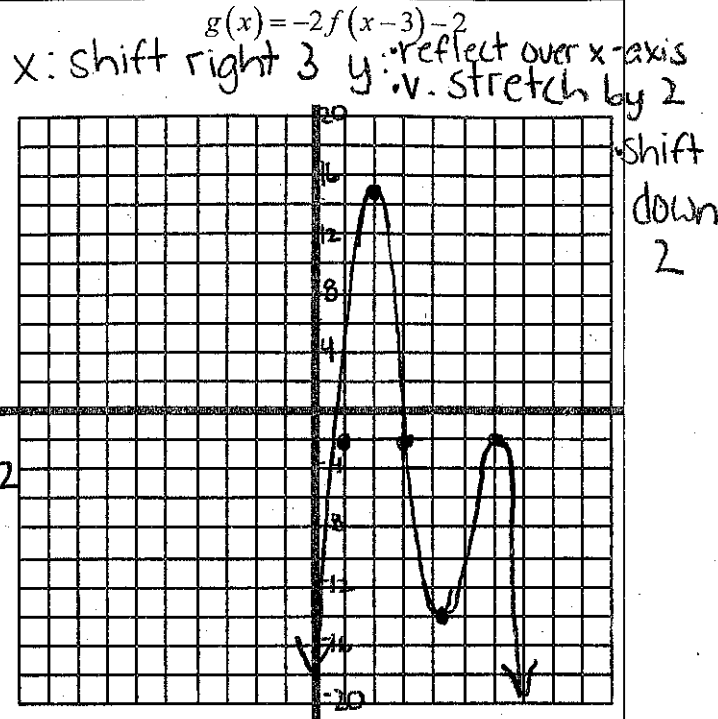 g(x) = -2f(x-3)-2
x: shift right 3 y: • reflect over x-axis
• v. stretch by 2
• shift
down
2
20
16
12
8
4
2
-4
-8
-12
-16
-20